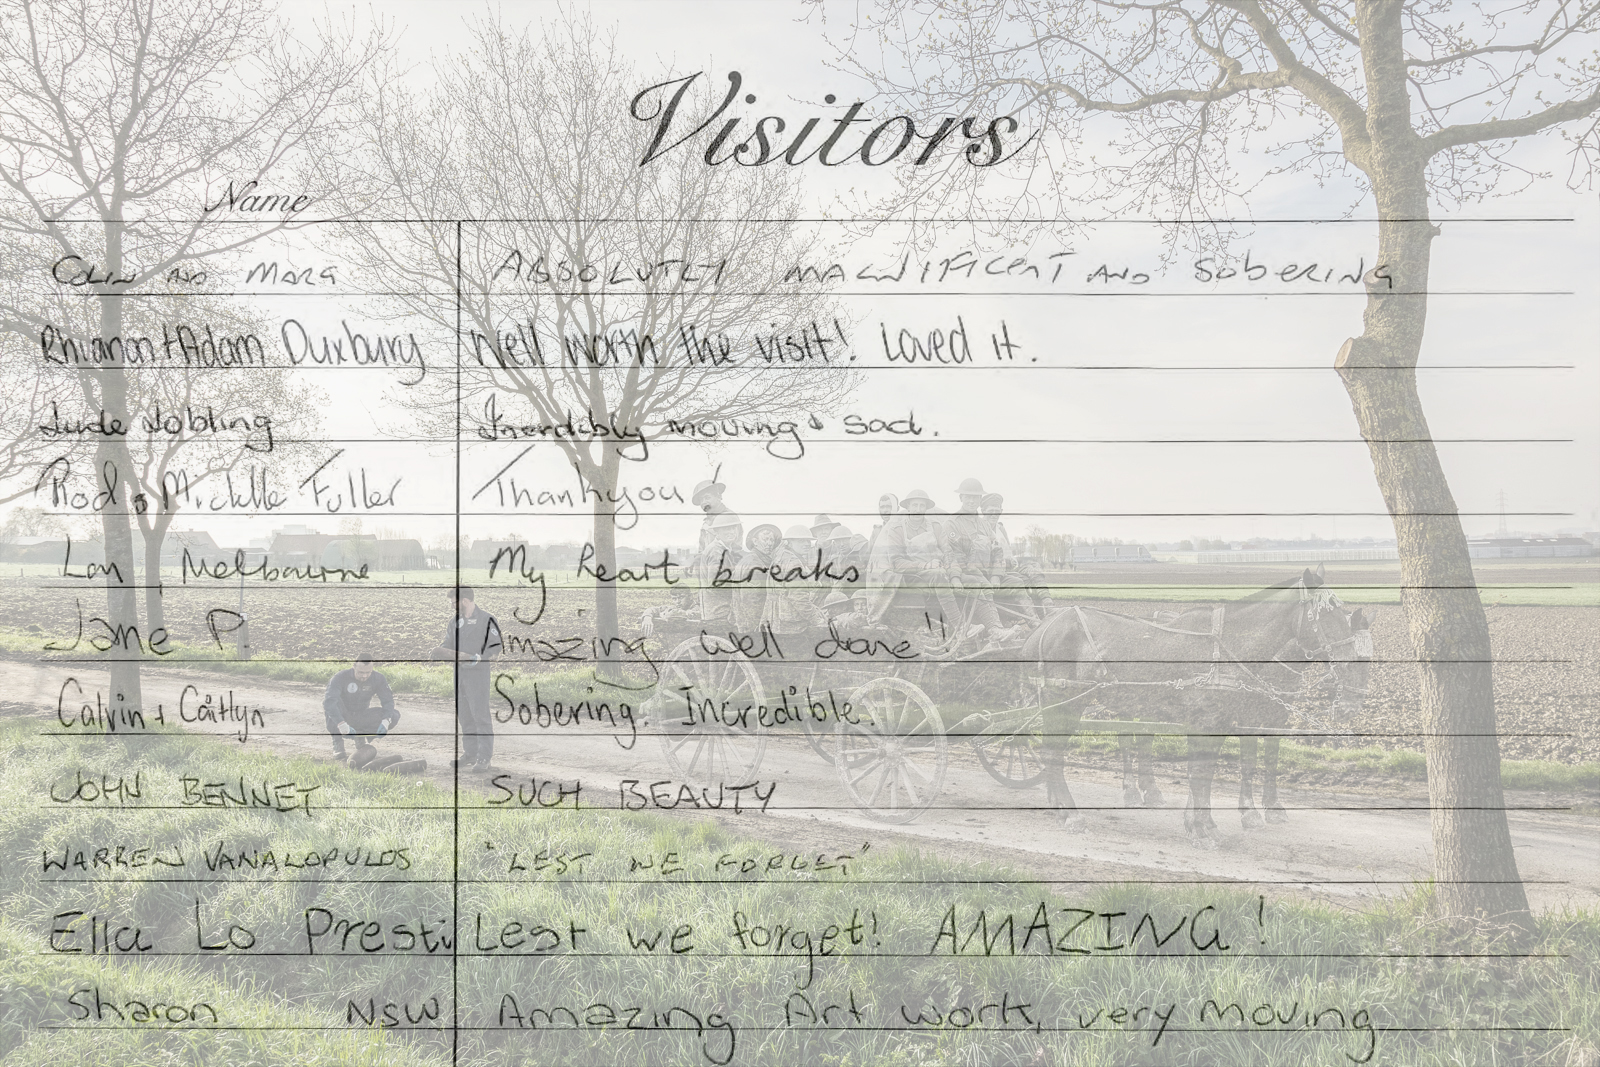 Visitors
Name
COLIN AND MARG ABSOLUTLY MAGNIFICENT AND SOBERING
Rhianon + Adam Duxbury Well worth the visit! Loved it.
Jude Jobling Inerdibly moving & sad.
Rod & Michelle Fuller Thankyou!
Lon, Melbourne My heart breaks
Jane P. Amazing well done!!
Calvin + Caitlyn Sobering. Incredible.
JOHN BENNET SUCH BEAUTY
WARREN VANALOPULOS "LEST WE FORGET"
Ella Lo Presti Lest we forget! AMAZING!
Sharon NSW Amazing Art work, very moving